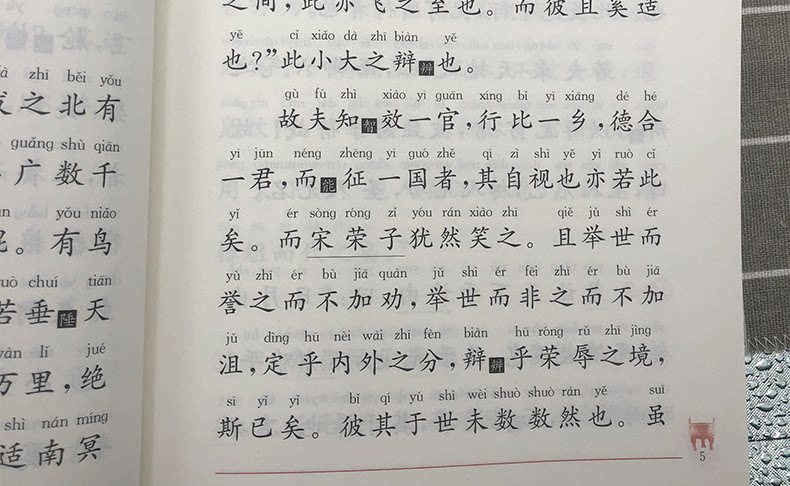 之间，此亦飞之至也。而彼且奚适
yě cǐ xiǎo dà zhī biàn yě
也？”此小大之辩辨也。
gù fú zhì xiào yì guān xíng bǐ yì xiāng dé hé
故夫知智效一官，行比一乡，德合
yì jūn néng zhēng yì guó zhě qí zì shì yě yì ruò cǐ
一君，而能征一国者，其自视也亦若此
yǐ ér sòng róng zǐ yóu rán xiào zhī qiě jǔ shì ér
矣。而宋荣子犹然笑之。且举世而
yù zhī ér bù jiā quàn jǔ shì ér fēi zhī ér bù jiā
誉之而不加劝，举世而非之而不加
jǔ dìng hū nèi wài zhī fèn biàn hū róng rǔ zhī jìng
沮，定乎内外之分，辩辨乎荣辱之境，
sī yǐ yǐ bǐ qí yú shì wèi shuò shuò rán yě suī
斯已矣。彼其于世未数数然也。虽
5
zhī běi yǒu
之北有
guǎng shù qiān
广数千
yǒu niǎo
。有鸟
ruò chuí tiān
若垂陲天
wàn lǐ jué
万里，绝
shì nán míng
适南冥